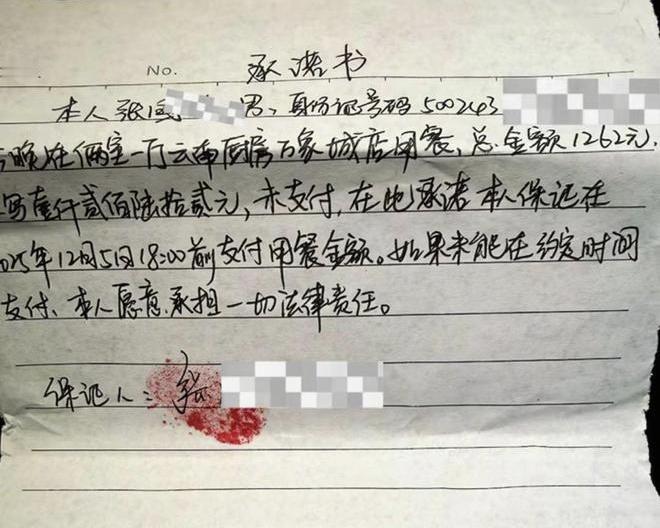 No. 承诺书
本人张 男、身份证号码500243
晚在俩室一厅云南厨房万象城店用餐、总金额1262元.
写壹仟贰佰陆拾贰元，未支付，在此承诺本人保证在
025年12月5日18:00前支付用餐金额。如果未能在约定时间
支付、本人愿意承担一切法律责任。
保证人：张